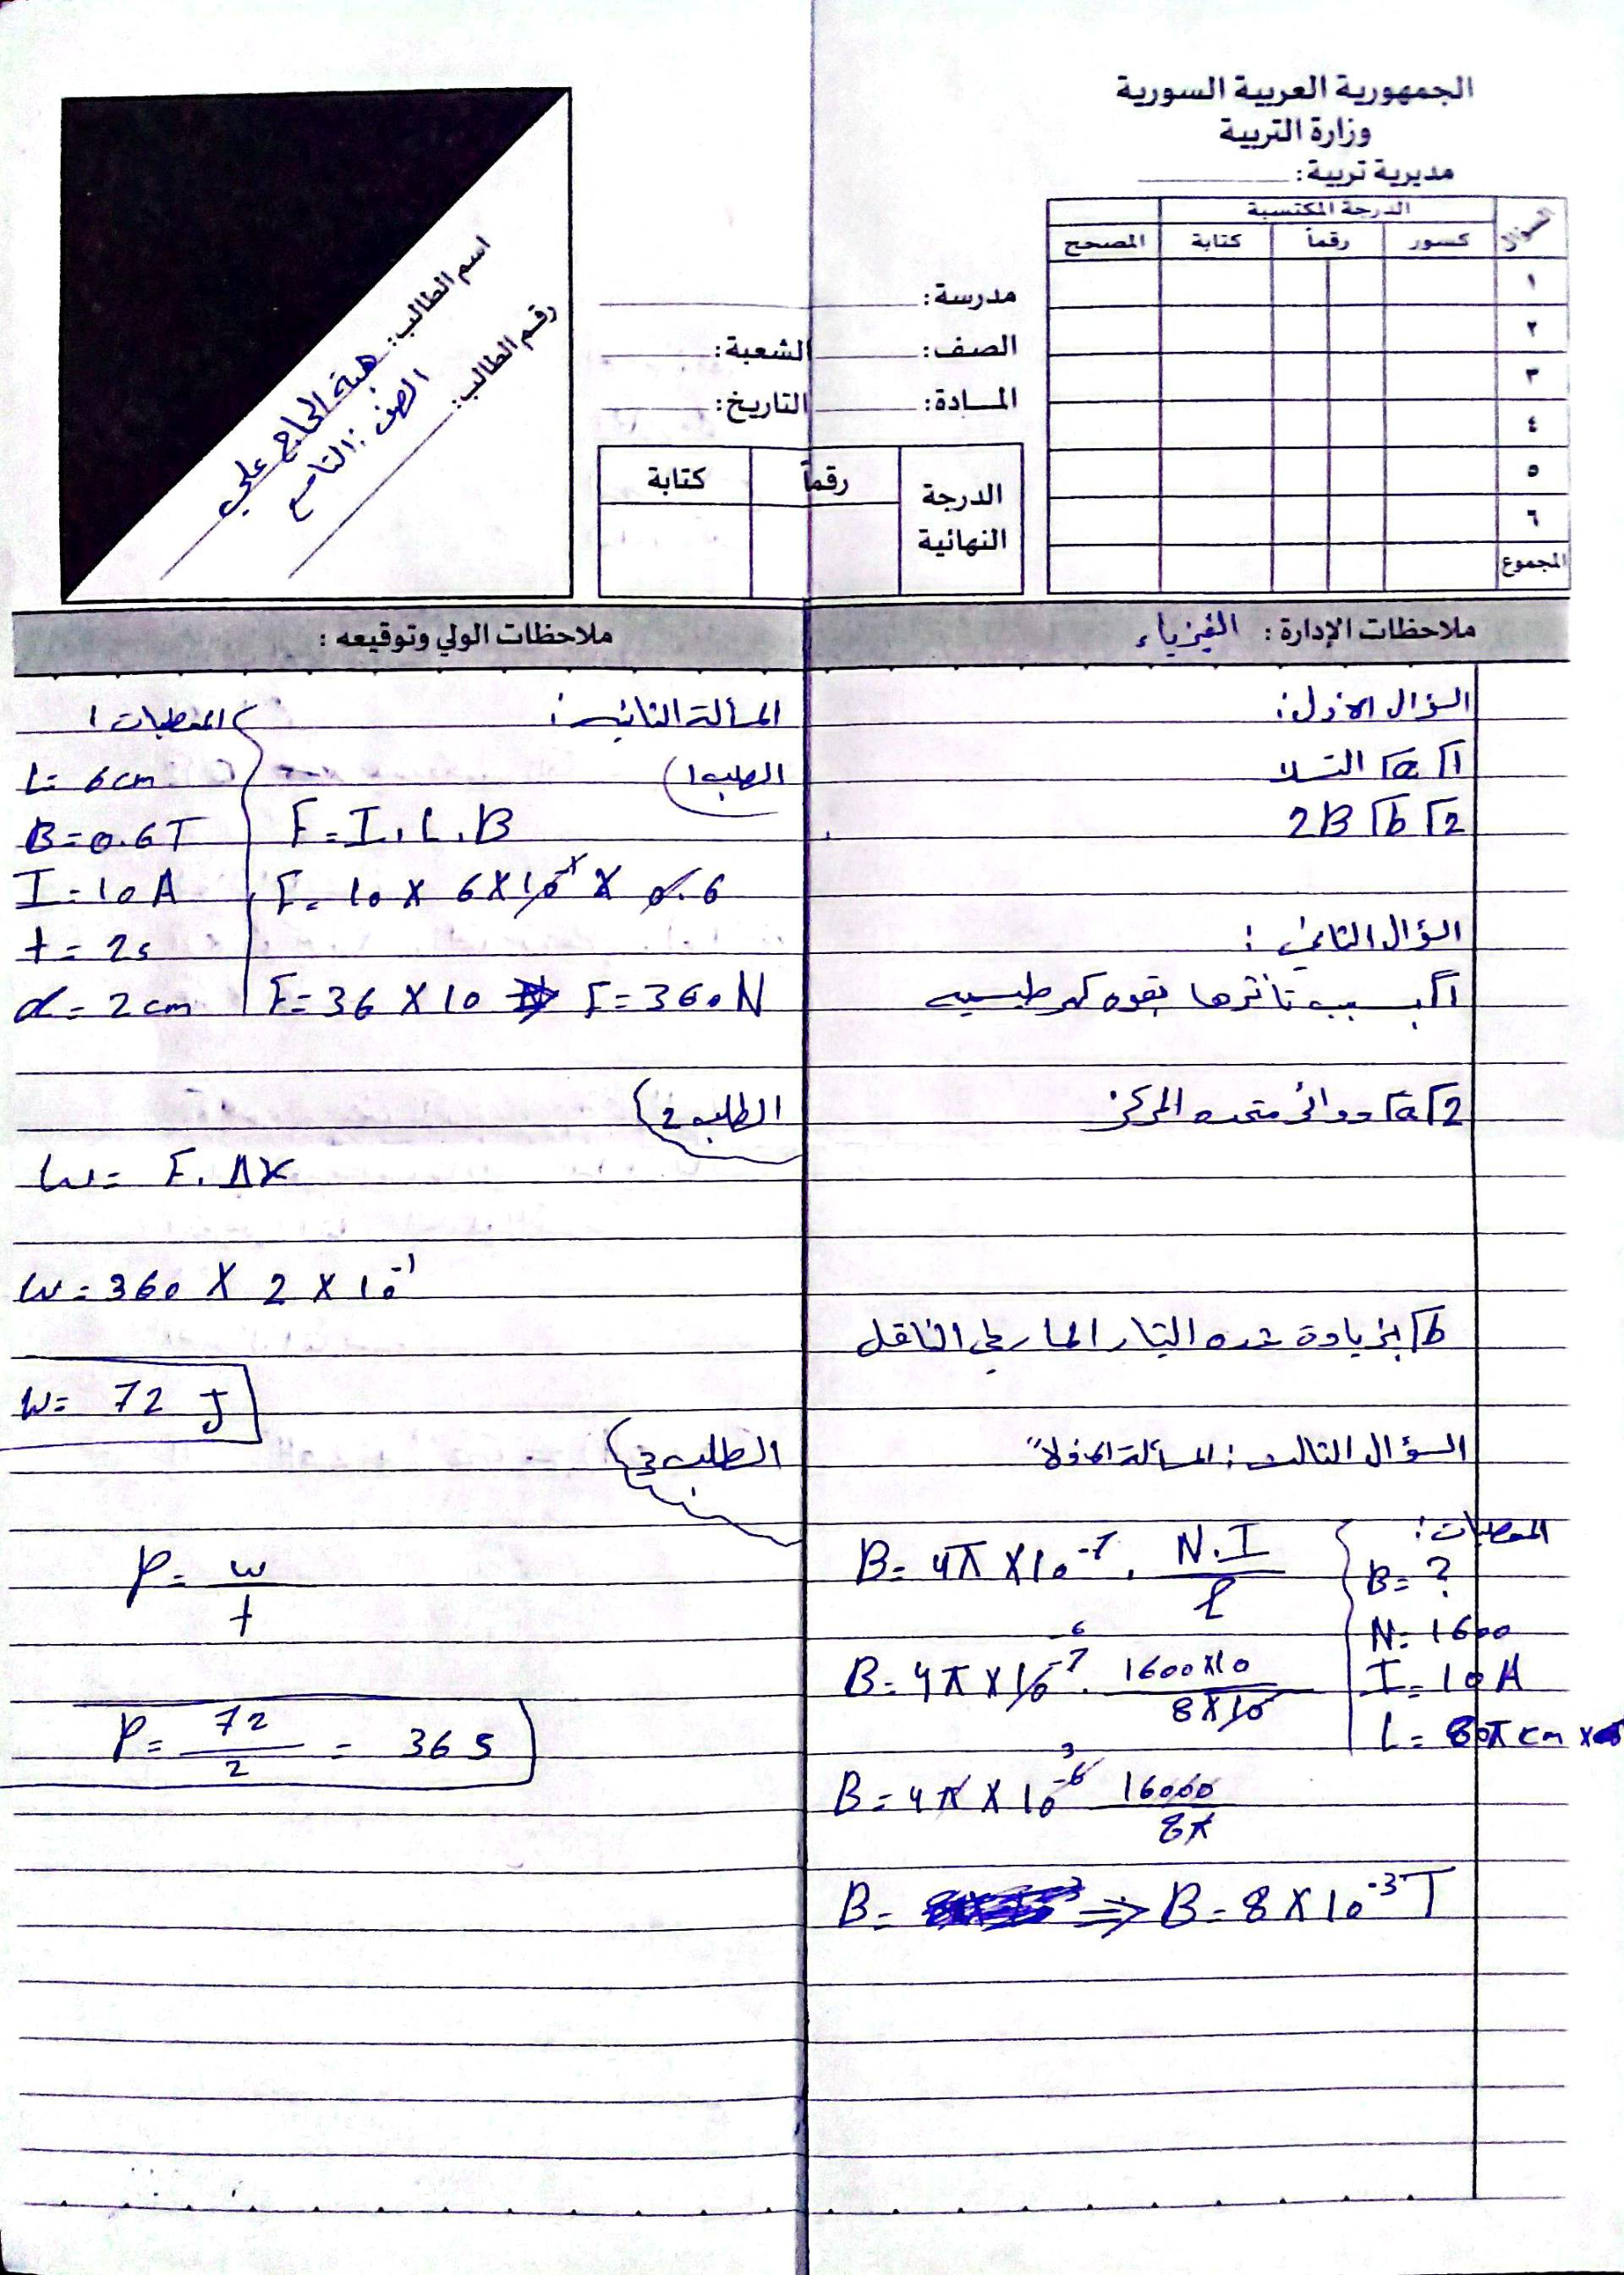 الجمهورية العربية السورية
وزارة التربية
مديرية تربية:
السؤال
الدرجة المكتسبة
كسور
رقماً
كتابة
المصحح
١
٢
٣
٤
٥
٦
المجموع
مدرسة:
الصف: الشعبة:
المادة: التاريخ:
الدرجة النهائية
رقماً
كتابة
اسم الطالب: هبة الحاج علي
رقم الطالب:
الصف: التاسع
ملاحظات الإدارة: الفيزياء
ملاحظات الولي وتوقيعه:
السؤال الاول:
1 a التسلا
2 b 2B
السؤال الثاني:
1 بسبب تأثرها بقوه كهرطيسيه
2 a دوائر متحده المركز
b بزيادة شده التيار المار في الناقل
السؤال الثالث: المسألة الاولا"
المعطيات:
B = ?
N = 1600
I = 10 A
L = 80π cm
B = 4π × 10⁻⁷ . N.I / l
B = 4π × 10⁻⁷ ⁻⁶ . 1600×10 / 8×10
B = 4π × 10⁻⁶ ³ 16000 / 8π
B = ⇒ B = 8 × 10⁻³ T
المسألة الثانيه:
المعطيات:
L = 6 cm
B = 0.6 T
I = 10 A
t = 2s
d = 2 cm
الطلب 1
F = I . L . B
F = 10 × 6 × 10⁻¹ × 0.6
F = 36 × 10 ⇒ F = 360 N
الطلب 2
W = F . Δx
W = 360 × 2 × 10⁻¹
W = 72 J
الطلب 3
P = w / t
P = 72 / 2 = 36 s